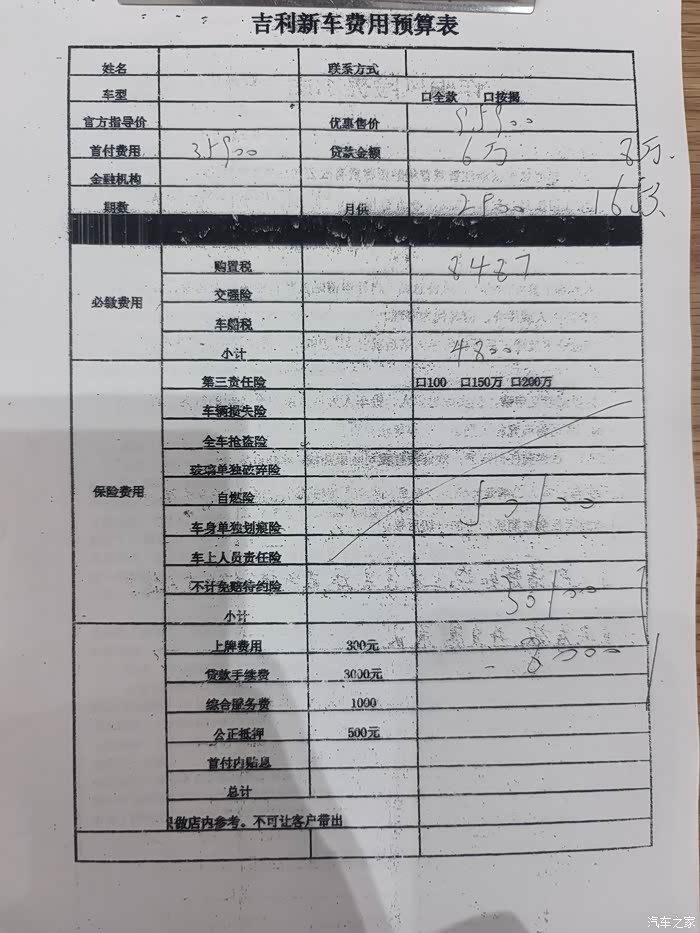 吉利新车费用预算表
姓名 联系方式
车型 口全款 口按揭
官方指导价 优惠售价 95900
首付费用 35900 贷款金额 6万 8万.
金融机构
期数 月供
购置税 8487
必缴费用 交强险
车船税
小计 4800.
第三责任险 口100 口150万 口200万
车辆损失险
全车抢盗险
玻璃单独破碎险
保险费用 自燃险
车身单独划痕险
车上人员责任险
不计免赔特约险
小计
上牌费用 300元
贷款手续费 3000元
综合服务费 1000
公正抵押 500元
首付内贴息
总计
只做店内参考。不可让客户带出
汽车之家